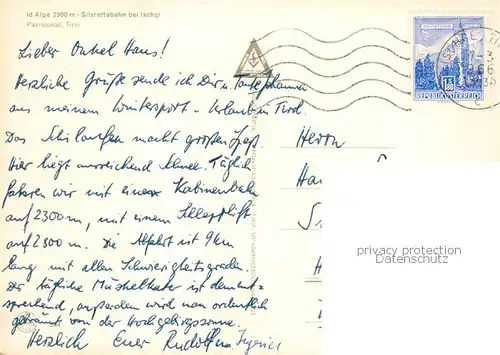 Id Alpe 2300 m - Silvrettabahn bei Ischgl
Paznauntal, Tirol
Lieber Onkel Hans!
Herzliche Grüße sende ich Dir u. Tante Johanna
aus meinem Wintersport-Urlaub in Tirol.
Das Schilaufen macht großen Spaß.
Hier liegt ausreichend Schnee. Täglich
fahren wir mit einer Kabinenbahn
auf 2300 m, und mit einem Schlepplift
auf 2800 m. Die Abfahrt ist 9 km
lang mit allen Schwierigkeitsgraden.
Der tägliche Muskelkater ist dement-
sprechend, außerdem wird man ordentlich
gebräunt von der Hochgebirgssonne.
Herzlich Euer Rudolf u.
REPUBLIK ÖSTERREICH
Herrn
Ha
S
H
privacy protection
Datenschutz